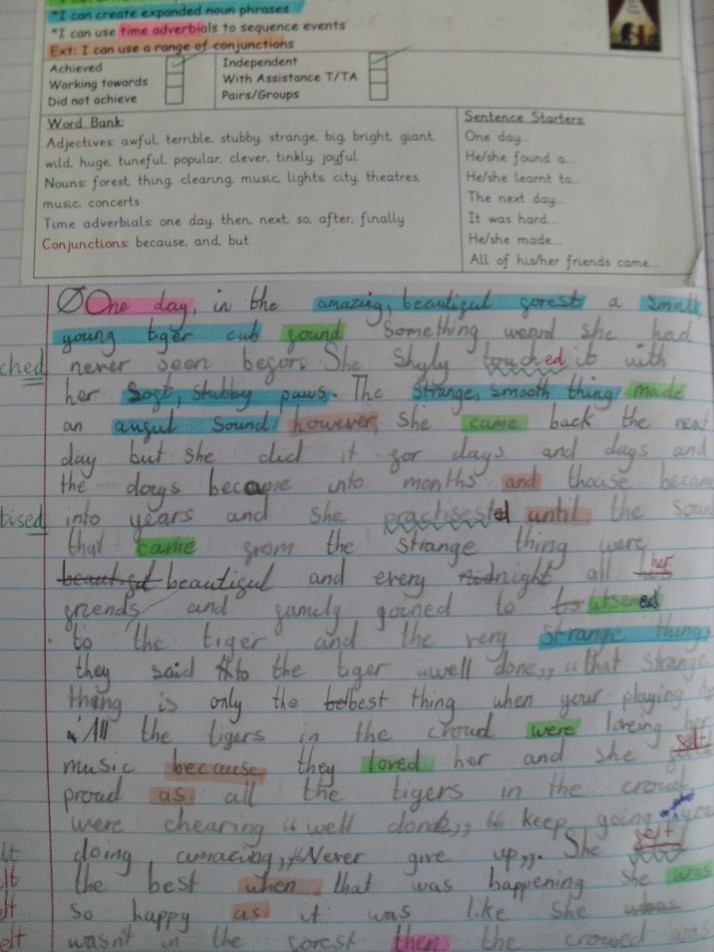 *I can create expanded noun phrases
*I can use time adverbials to sequence events
Ext: I can use a range of conjunctions
Achieved
Working towards
Did not achieve
Independent
With Assistance T/TA
Pairs/Groups
Word Bank:
Adjectives: awful, terrible, stubby, strange, big, bright, giant,
wild, huge, tuneful, popular, clever, tinkly, joyful
Nouns: forest, thing, clearing, music, lights, city, theatres,
music, concerts
Time adverbials: one day, then, next, so, after, finally
Conjunctions: because, and, but
Sentence Starters:
One day...
He/she found a...
He/she learnt to...
The next day...
It was hard...
He/she made...
All of his/her friends came...
One day, in the amazing, beautiful forest a small,
young tiger cub found something weard she had
ched never seen befor. She shyly touched it with
her soft, stubby paws. The strange, smooth thing made
an awful sound however, she came back the next
day but she did it for days and days and
the days became into months and thouse became
tised into years and she practisested until the soun
that came from the strange thing were
beautiful and every night all her
friends and family joined to listened
to the tiger and the very strange thing.
they said to the tiger "well done,, "that strange
thing is only the best thing when your playing it
"All the tigers in the croud were loveing her
music because they loved her and she felt
proud as all the tigers in the croud
were chearing "well done,, "keep going you
doing amazing,, "Never give up,,. She felt
the best when that was happening she was
so happy as it was like she
elt wasn't in the forest then the crowed was